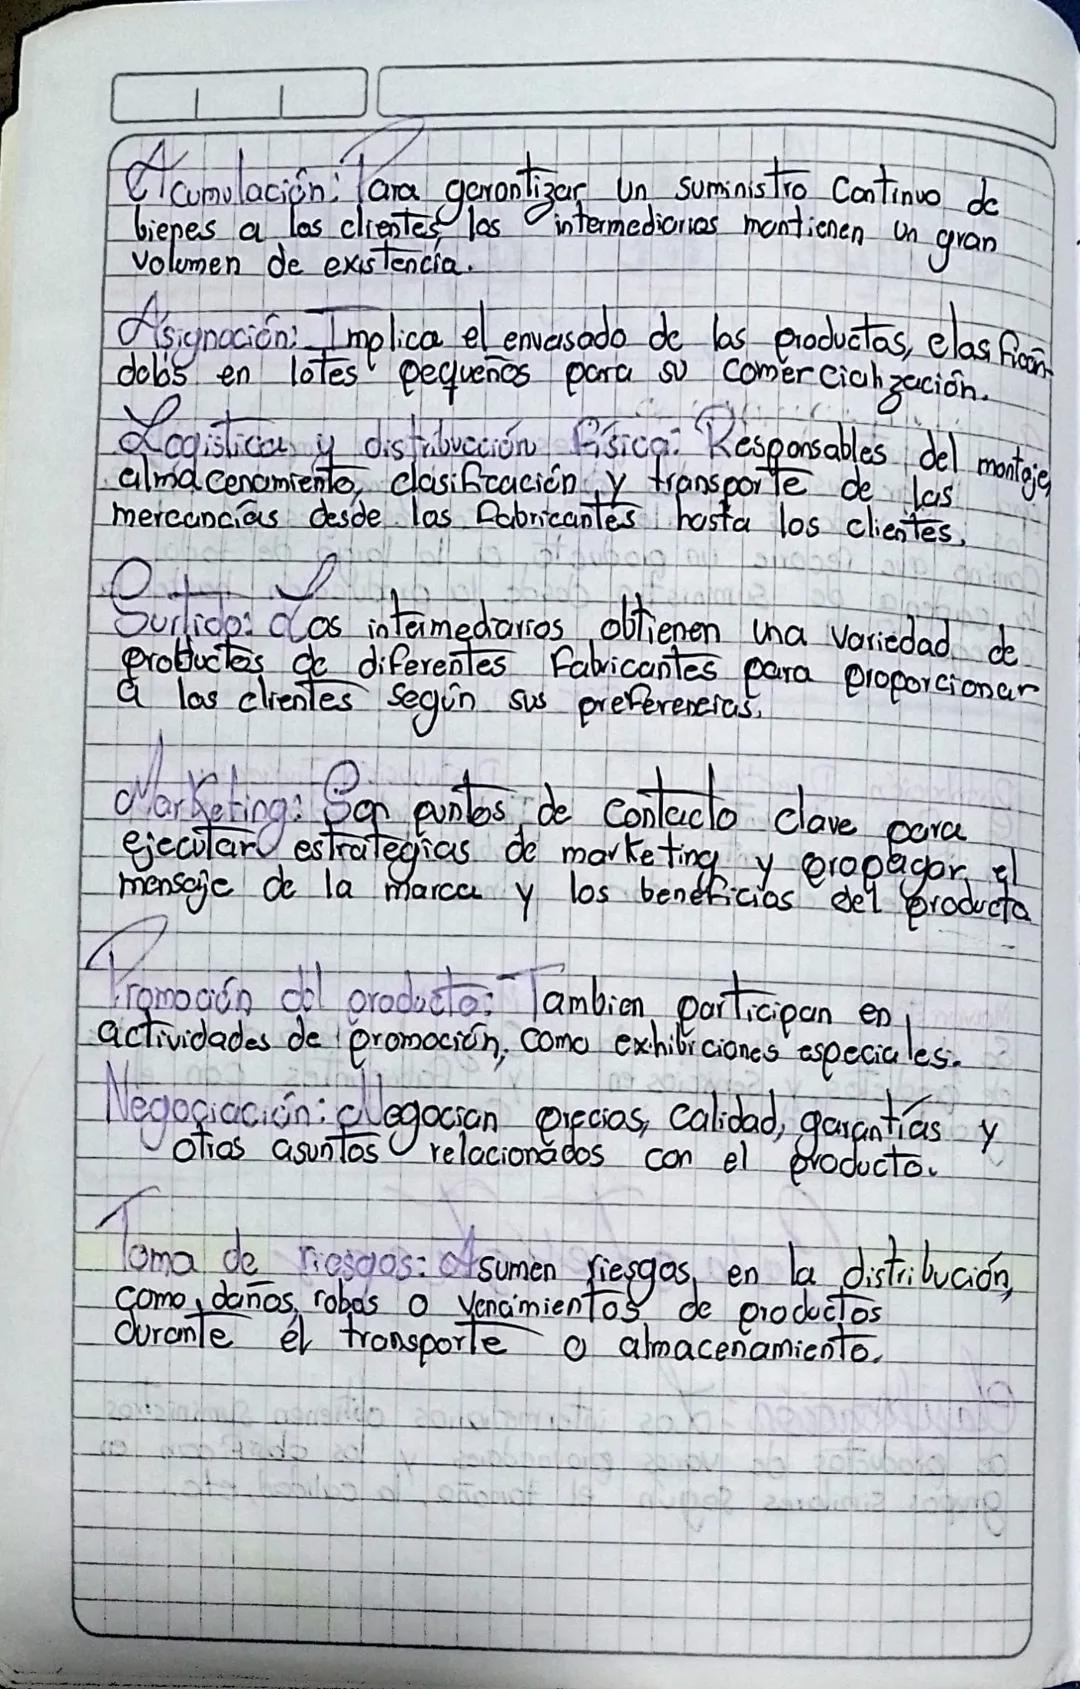 Acumulación: Para garantizar un suministro continuo de
bienes a los clientes los intermediarios mantienen un gran
volumen de existencia.
Asignación: Implica el envasado de los productos, clasifican-
dolos en lotes pequeños para su comercialización.
Logistica y distribucción física: Responsables del montaje,
almacenamiento, clasificación y transporte de las
mercancías desde los fabricantes hasta los clientes.
Surtido: Los intermediarios obtienen una variedad de
productos de diferentes fabricantes para proporcionar
a los clientes según sus preferencias.
Marketing: Son puntos de contacto clave para
ejecutar estrategias de marketing y propagar el
mensaje de la marca y los beneficios del producto
Promoción del producto: Tambien participan en
actividades de promoción, como exhibiciones especiales.
Negociación: Negocian precios, calidad, garantías y
otros asuntos relacionados con el producto.
Toma de riesgos: Asumen riesgos en la distribución,
como daños, robos o vencimientos de productos
durante el transporte o almacenamiento.